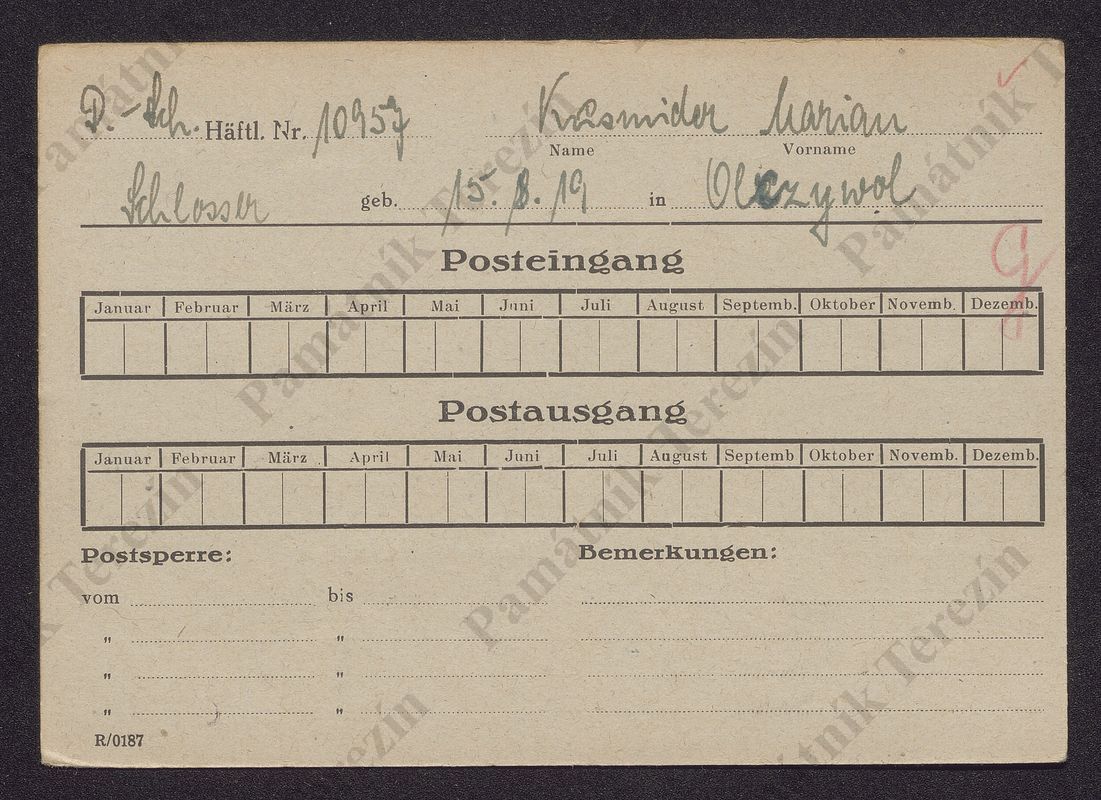 P.-Sch. Häftl. Nr. 10957 Kusmider Marian
Name Vorname
Schlosser geb. 15. 8. 19 in Olczywol
Posteingang
Januar Februar März April Mai Juni Juli August Septemb. Oktober Novemb. Dezemb.
Postausgang
Januar Februar März April Mai Juni Juli August Septemb Oktober Novemb. Dezemb.
Postsperre: Bemerkungen:
vom bis
" "
" "
" "
R/0187
Památník Terezín